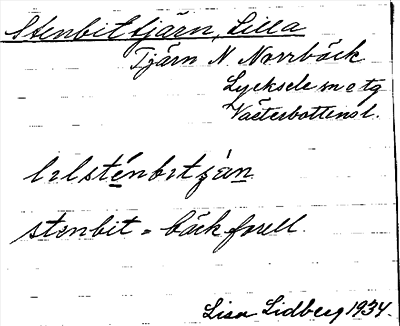 Stenbittjärn, Lilla
Tjärn N. Norrbäck
Lycksele sn o tg
Västerbottens l.
lɩlsténbɩtjän
stenbit = bäckforell.
Lisa Lidberg 1934.